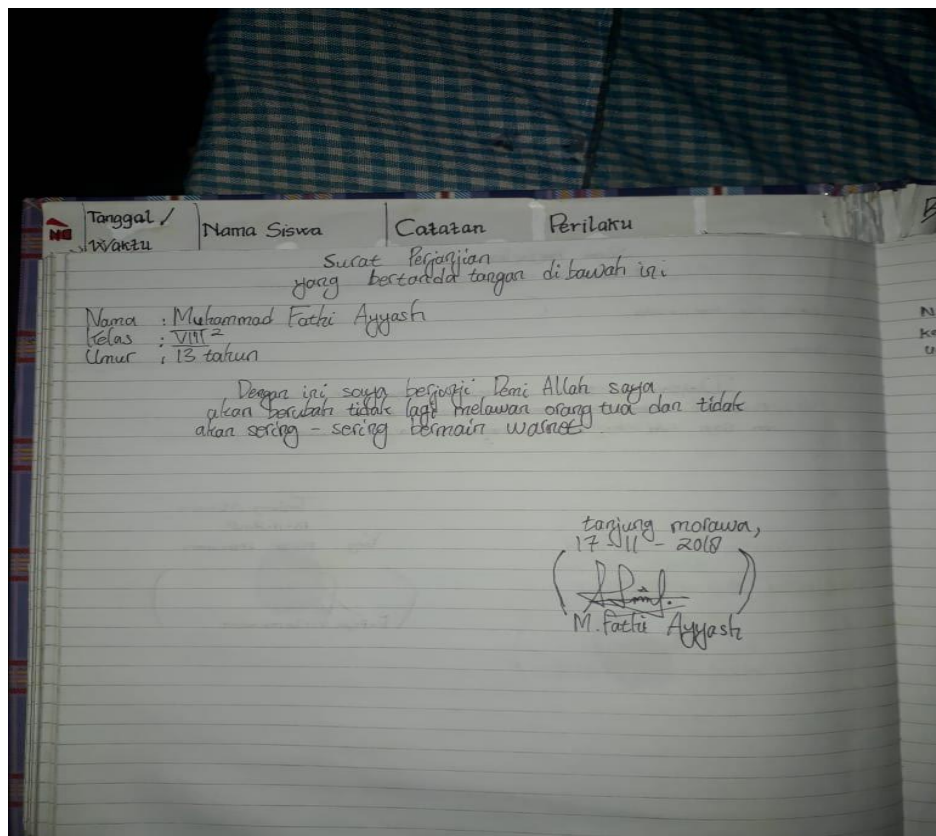 Tanggal / Waktu
Nama Siswa
Catatan Perilaku
Surat Perjanjian
yang bertanda tangan di bawah ini
Nama : Muhammad Fathi Ayyash
Kelas : VIII 2
Umur : 13 tahun
Dengan ini saya berjanji Demi Allah saya
akan berubah tidak lagi melawan orang tua dan tidak
akan sering - sering bermain warnet.
tanjung morawa,
17 - 11 - 2018
M. Fathi Ayyash